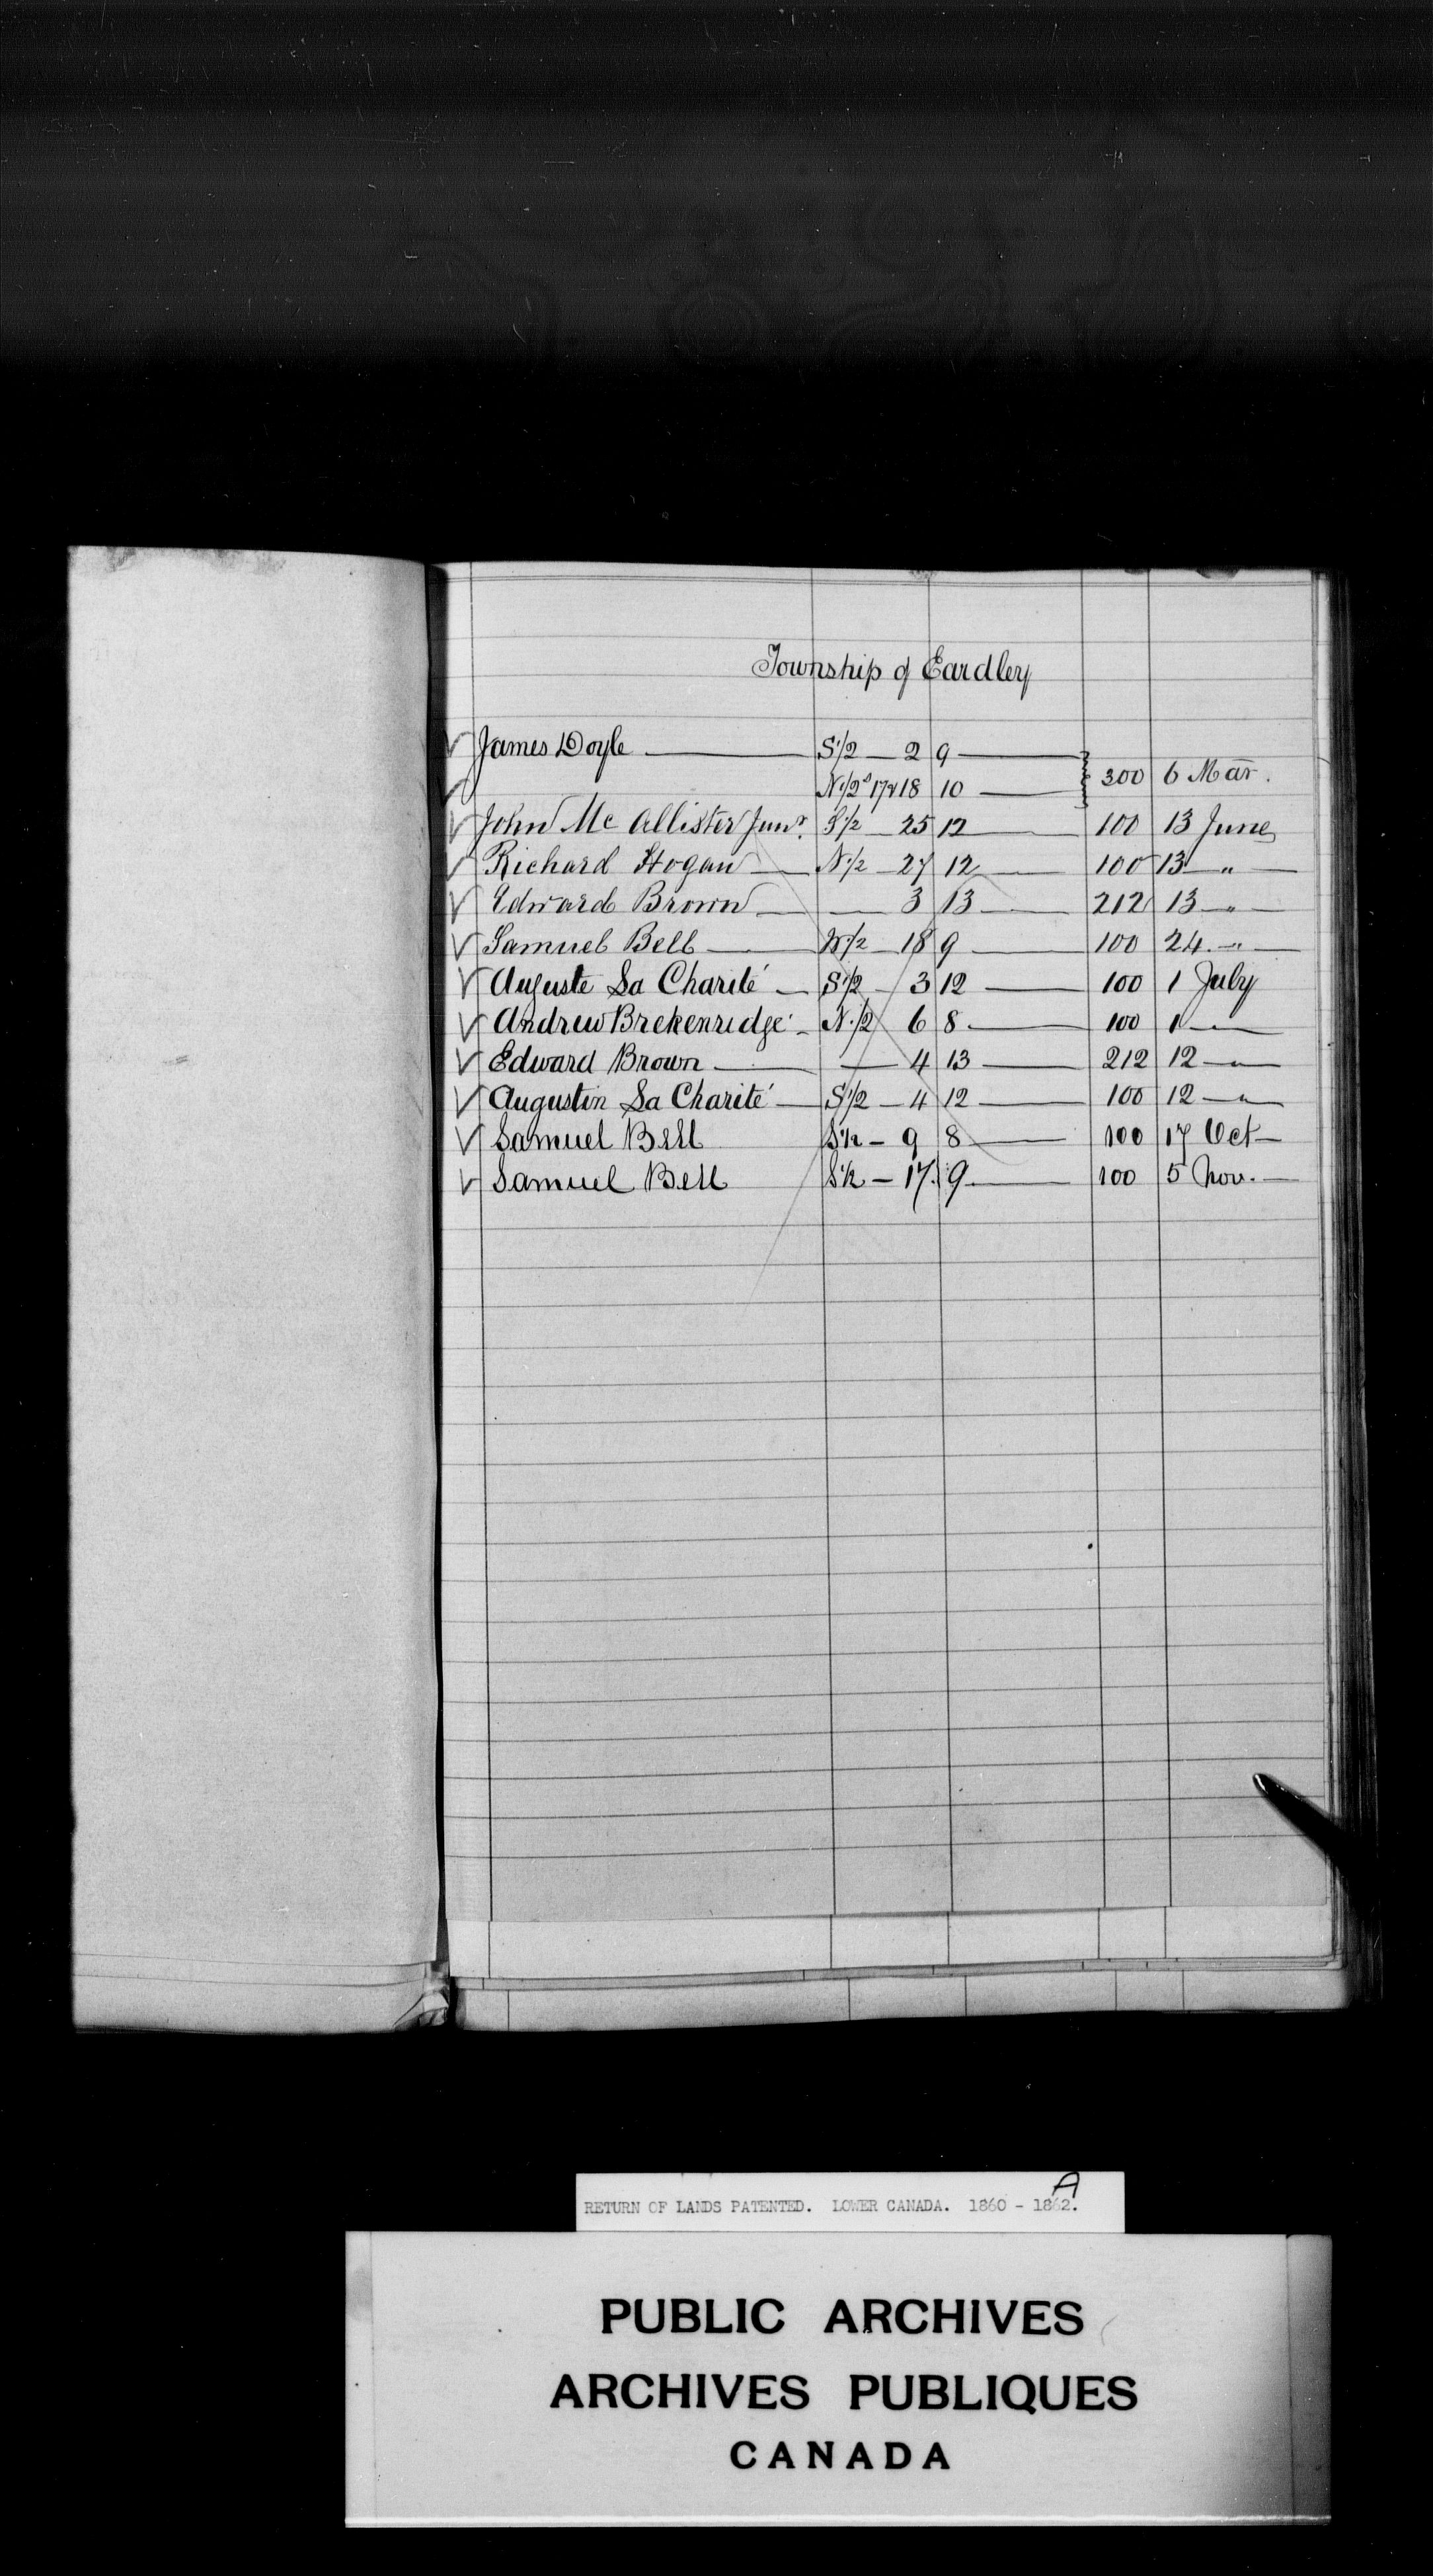 Township of Eardley
✓ James Doyle — S½ — 2 9 —
✓ N½s 17&18 10 — 300 6 Mar.
✓ John Mc Allister Junr. S½ — 25 12 — 100 13 June
✓ Richard Hogan — N½ — 27 12 — 100 13 — " —
✓ Edward Brown — — 3 13 — 212 13 — " —
✓ Samuel Bell — N½ — 18 9 — 100 24 — " —
✓ Auguste La Charité — S½ — 3 12 — 100 1 July
✓ Andrew Brekenridge — N½ 6 8 — 100 1 — " —
✓ Edward Brown — — 4 13 — 212 12 — " —
✓ Augustin La Charité — S½ — 4 12 — 100 12 — " —
✓ Samuel Bell S½ — 9 8 — 100 17 Oct —
✓ Samuel Bell S½ — 17. 9 — 100 5 Nov. —
A
RETURN OF LANDS PATENTED. LOWER CANADA. 1860 - 1862.
PUBLIC ARCHIVES
ARCHIVES PUBLIQUES
CANADA